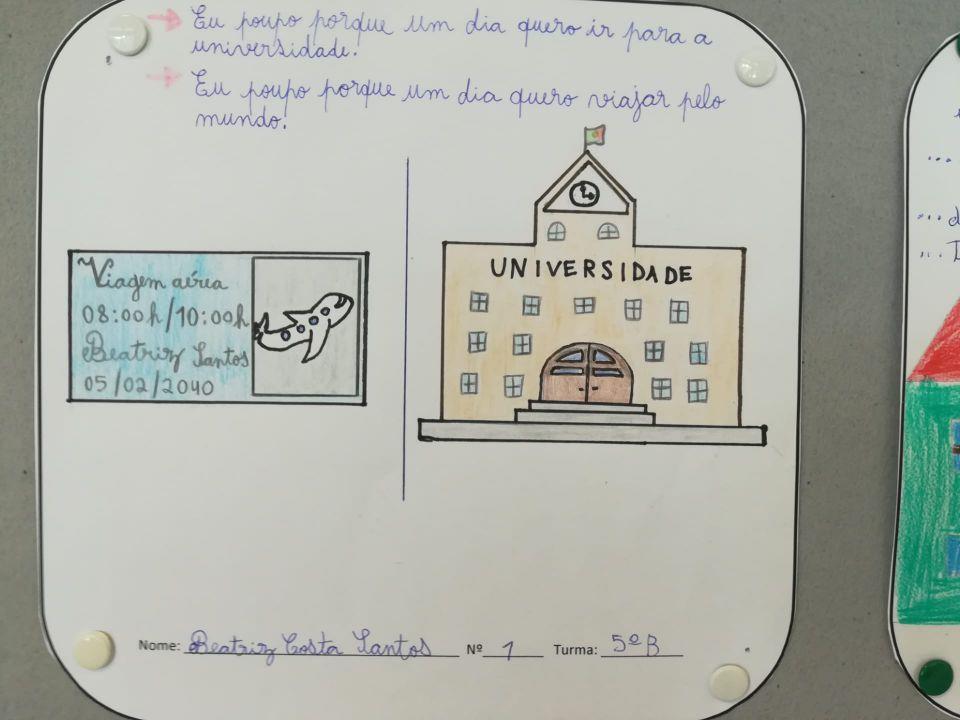 Eu poupo porque um dia quero ir para a
universidade.
Eu poupo porque um dia quero viajar pelo
mundo.
UNIVERSIDADE
Viagem aérea
08:00h/10:00h
Beatriz Santos
05/02/2040
Nome: Beatriz Costa Santos Nº 1 Turma: 5ºB